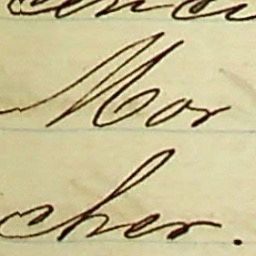 Mor
cher.